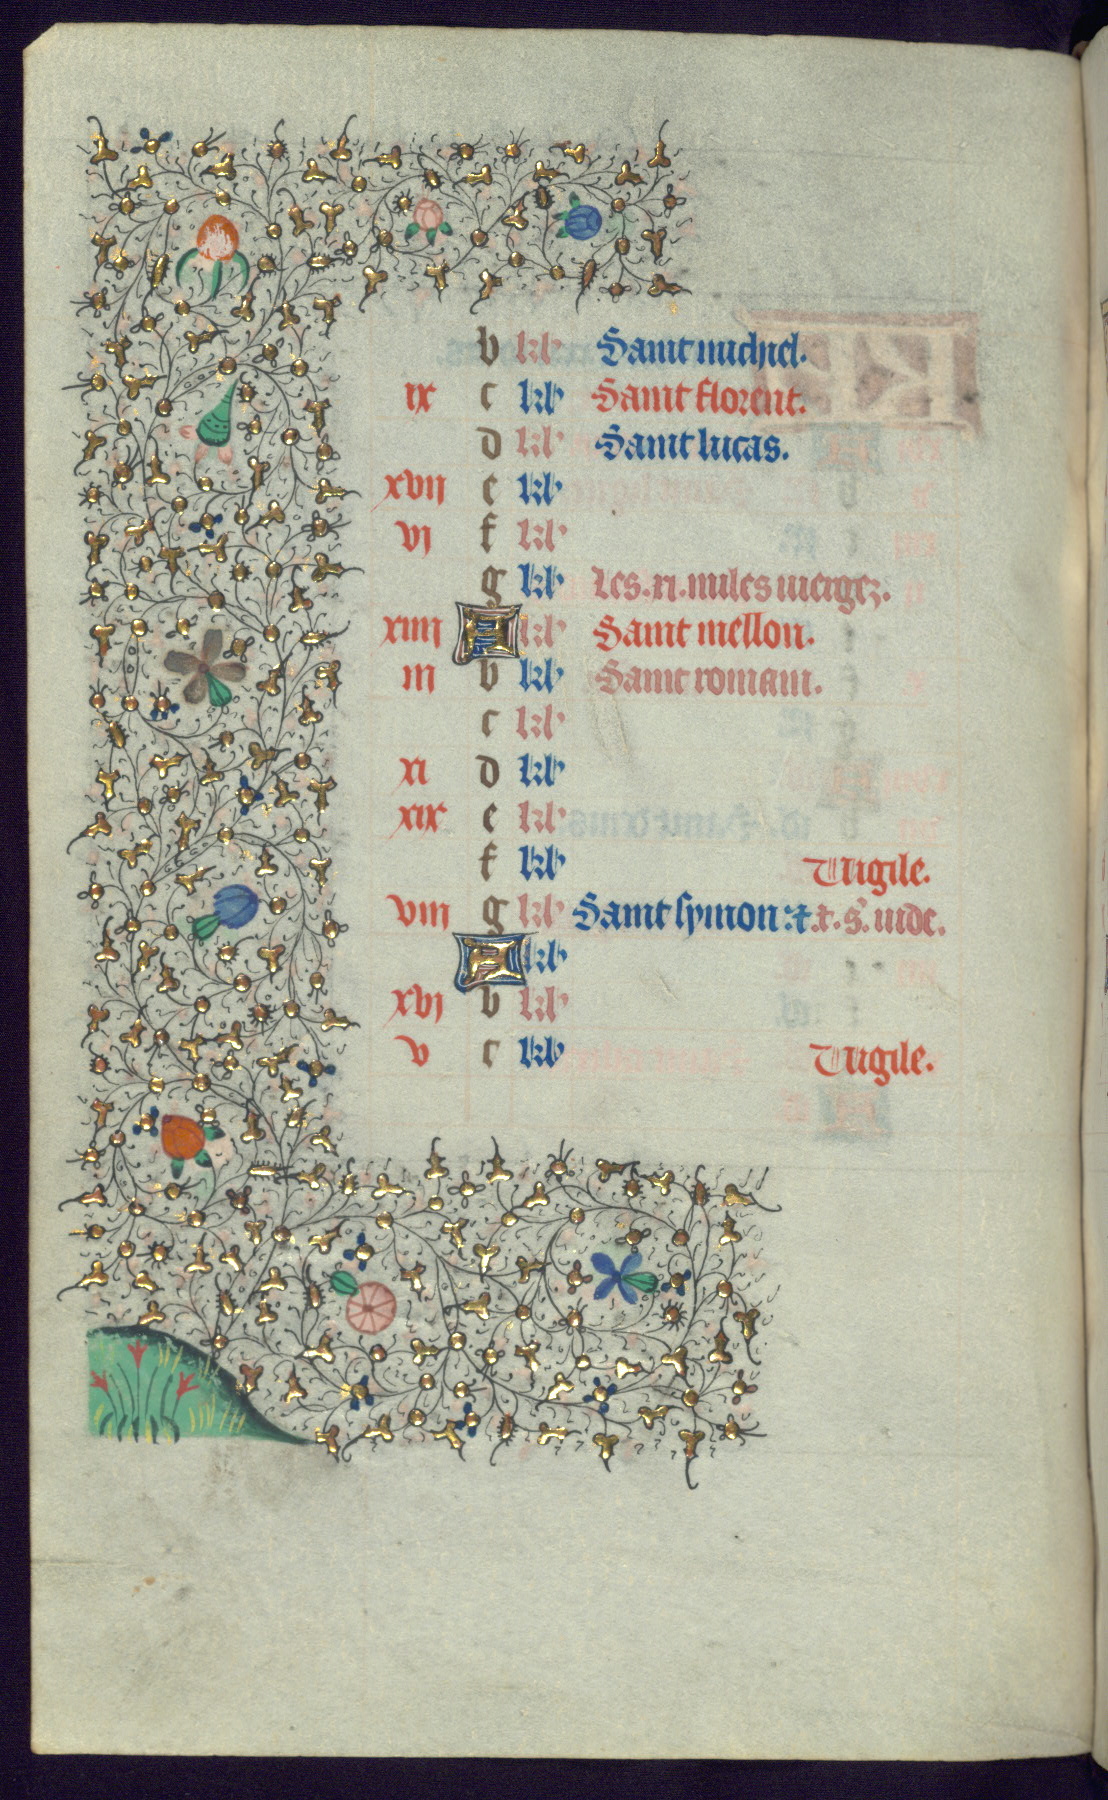 b kl' Saint michiel.
ix c kl' Saint florent.
d kl' Saint lucas.
xvij e kl'
vj f kl'
g kl' Les .xi. miles uiergez.
xiiij A kl' Saint mellon.
iij b kl' Saint romain.
c kl'
xi d kl'
xix e kl'
f kl' Uigile.
viij g kl' Saint symon ⁊ .s. iude.
A kl'
xvj b kl'
v c kl' Uigile.